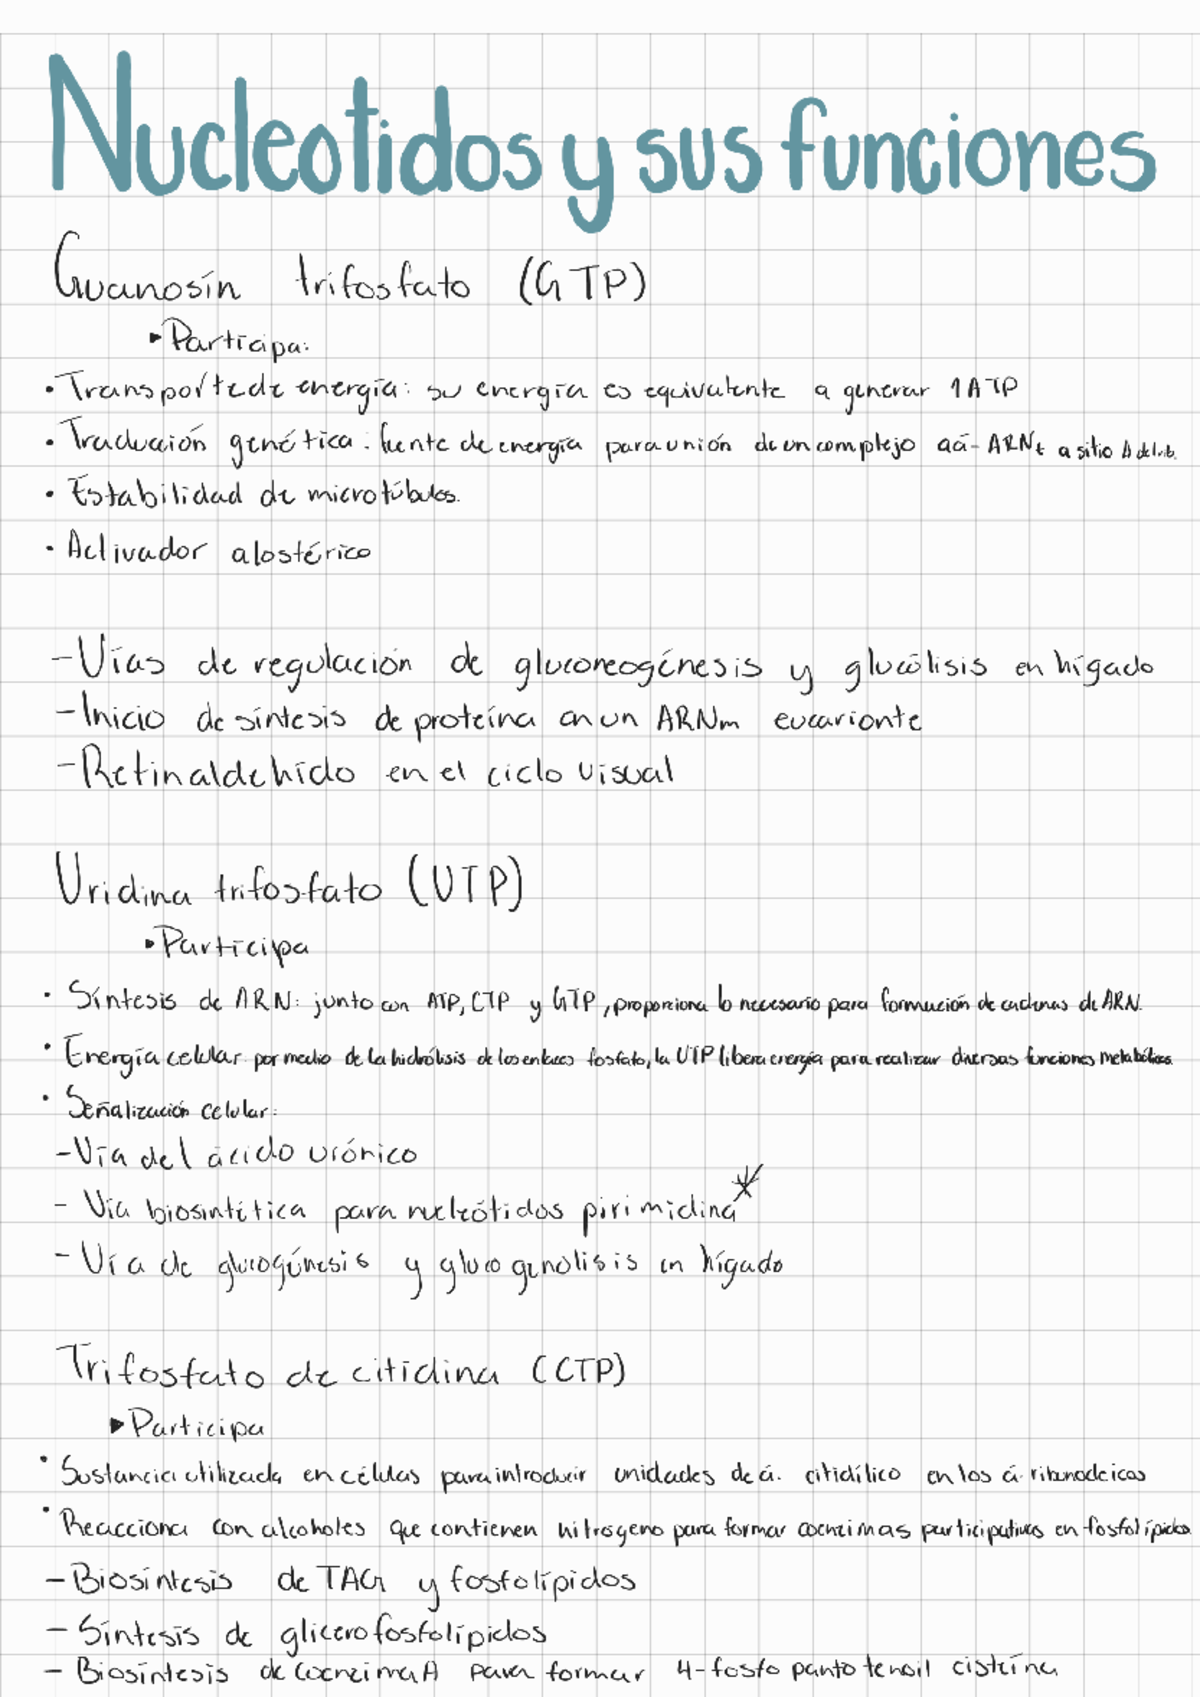 Nucleotidos y sus funciones
Guanosín trifosfato (GTP)
▸Participa:
• Transporte de energía: su energía es equivalente a generar 1 ATP
• Traducción genética: fuente de energía para unión de un complejo aa- ARNt a sitio A del rib.
• Estabilidad de microtúbulos.
• Activador alostérico
- Vías de regulación de gluconeogénesis y glucólisis en hígado
- Inicio de síntesis de proteína en un ARNm eucarionte
- Retinaldehído en el ciclo visual
Uridina trifosfato (UTP)
▸Participa
• Síntesis de ARN: junto con ATP, CTP y GTP, proporciona lo necesario para formación de cadenas de ARN.
• Energía celular por medio de la hidrólisis de los enlaces fosfato, la UTP libera energía para realizar diversas funciones metabólicas.
• Señalización celular:
- Vía del ácido urónico
- Vía biosintética para nucleótidos pirimidina*
- Vía de glucogénesis y glucogenólisis en hígado
Trifosfato de citidina (CTP)
▸Participa
• Sustancia utilizada en células para introducir unidades de á. citidílico en los á. ribonucleicos
• Reacciona con alcoholes que contienen nitrógeno para formar coenzimas participativas en fosfolípidos
- Biosíntesis de TAG y fosfolípidos
- Síntesis de glicerofosfolípidos
- Biosíntesis de coenzima A para formar 4-fosfo pantotenoil cisteína